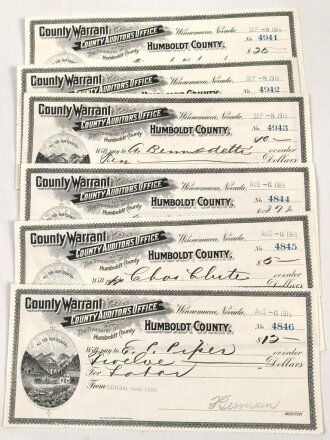 County Warrant
COUNTY AUDITORS OFFICE
Winnemucca, Nevada, SEP -8 1915
HUMBOLDT COUNTY. No 4941
$
County Warrant
COUNTY AUDITORS OFFICE
Winnemucca, Nevada, SEP -8 1915
HUMBOLDT COUNTY. No 4942
County Warrant
COUNTY AUDITORS OFFICE
Winnemucca, Nevada, SEP -8 1915
The Treasurer of Humboldt County
HUMBOLDT COUNTY. No 4943
Will pay to or order
Ten Dollars
County Warrant
COUNTY AUDITORS OFFICE
Winnemucca, Nevada, AUG -6 1915
The Treasurer of Humboldt County
HUMBOLDT COUNTY. No 4844
County Warrant
COUNTY AUDITORS OFFICE
Winnemucca, Nevada, AUG -6 1915
The Treasurer of Humboldt County
HUMBOLDT COUNTY. No 4845
$ 5
Will pay to Chas or order
Dollars
County Warrant
COUNTY AUDITORS OFFICE
Winnemucca, Nevada, AUG -6 1915
The Treasurer of Humboldt County
HUMBOLDT COUNTY. No 4846
$ 12
Will pay to E. C. Piper or order
Twelve Dollars
For Labor
From GENERAL ROAD FUND
AUDITOR